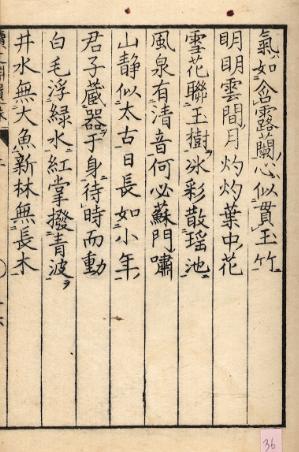 氣如含露蘭心似貫玉竹
明明雲間月灼灼葉中花
雪花聯玉樹冰彩散瑶池
風泉有清音何必蘇門嘯
山静似太古日長如小年
君子藏器于身待時而動
白毛浮綠水紅掌撥青波
井水無大魚新林無長木
36